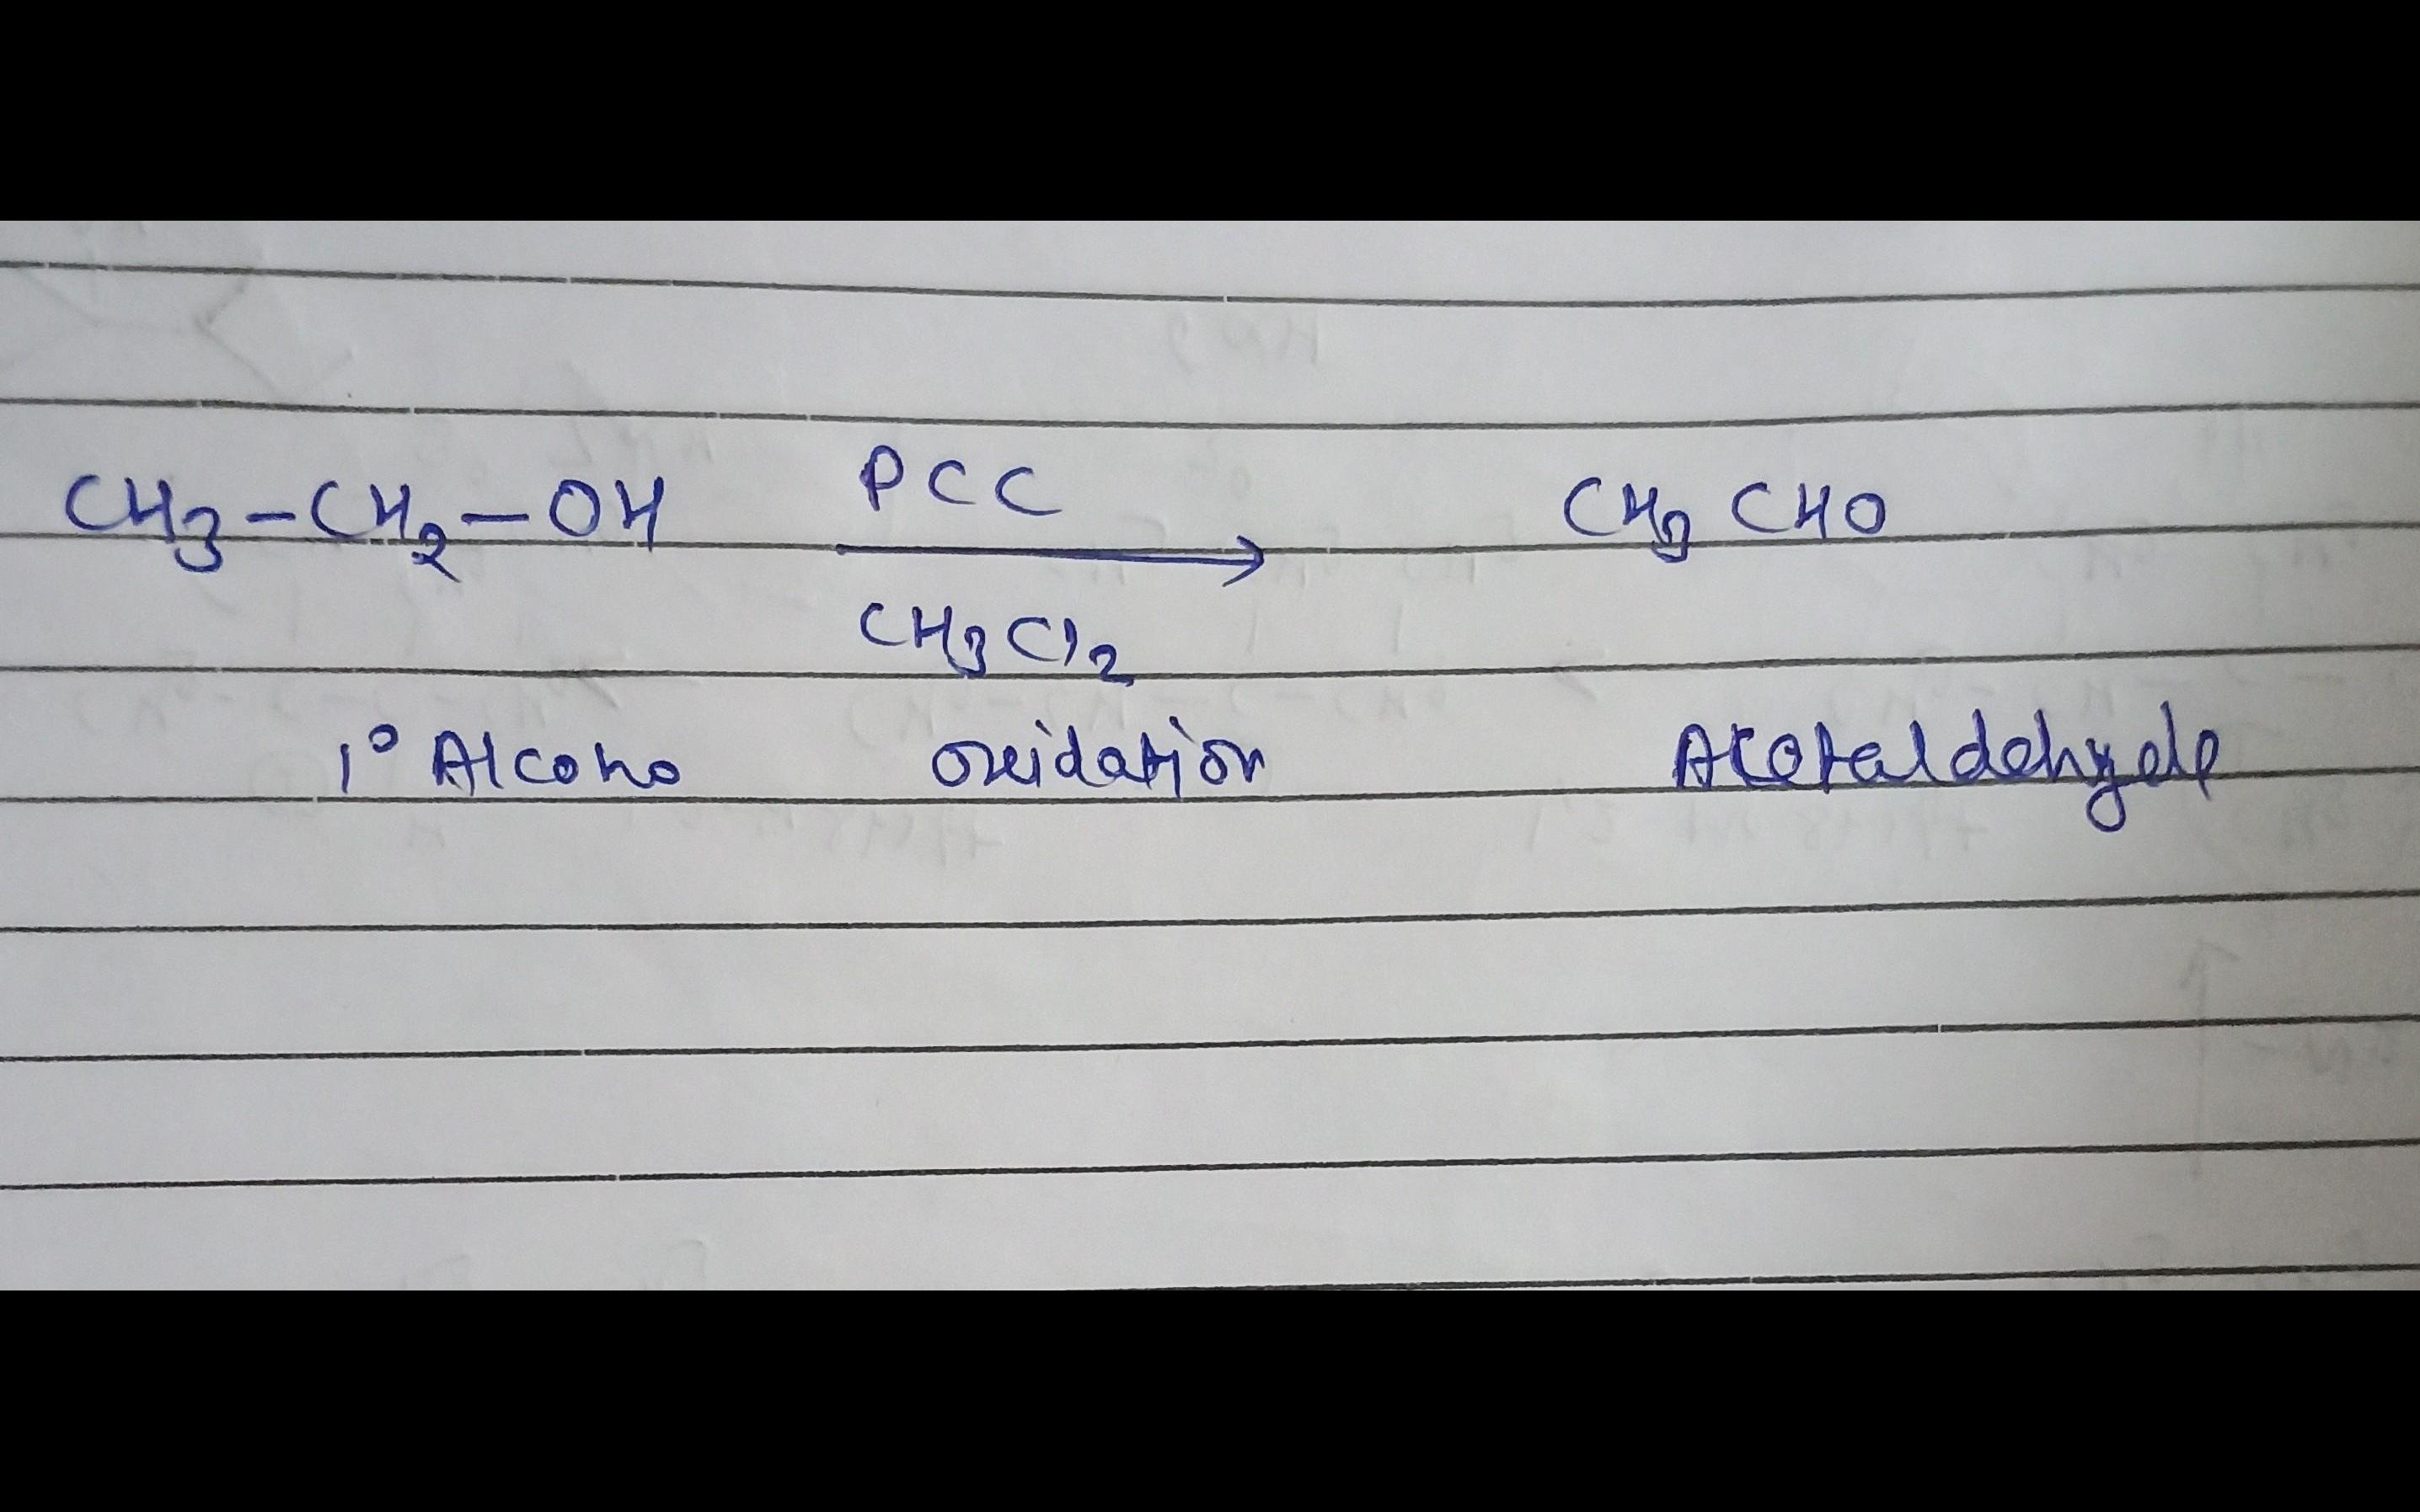 CH3-CH2-OH PCC CH3 CHO
CH3Cl2
1° Alcoho oxidation Acetaldehyde